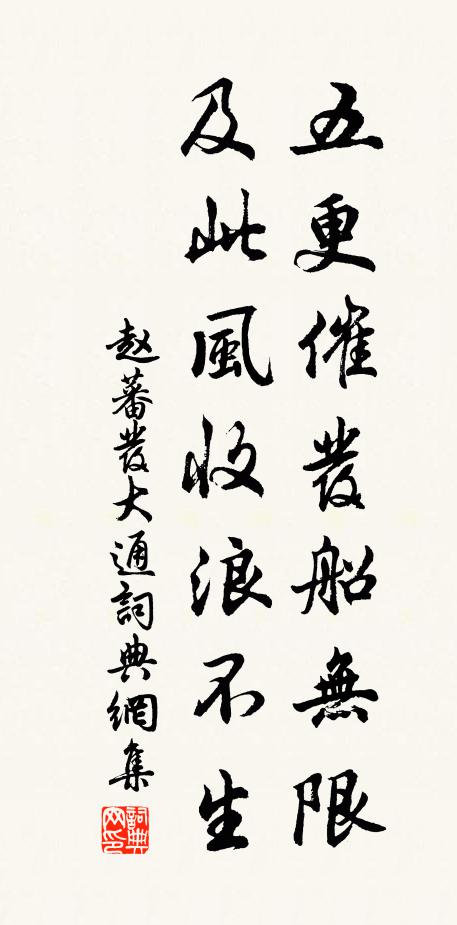 五更催發船無限
及此風收浪不生
赵蕃發大通詞典網集
詞典
网印